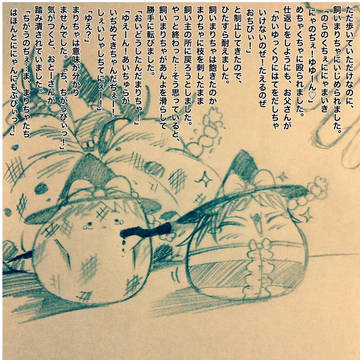 ただ歩いていただけなのに、
飼いまりちゃにいじめられました。
「のらのくちぇににゃまいき
にゃのちぇーゆゆーん♡」
仕返しをしようにも、お父さんが
めちゃくちゃに殴られました。
「かいゆっくりにはてをだしちゃ
いけないのぜ…たえるのぜ
おちびぃ…」
と制止してきましたので、
ひたすら耐えました。
飼いまりちゃは飽きたのか
まりちゃに枝を刺したまま
飼い主の所に戻ろうとしました。
やっと終わった…そう思っていると、
飼いまりちゃがあんよを滑らして
勝手に転ました。
「おいどうしたんだまりちゃ！」
「ゆぴぃ！あいちゅが
いちめてきちゃんだちぇー！
しぇいしゃいちてにぇー！」
「ゆえ？」
まりちゃは意味が分かり
ませんでした、ち、ちがうぴぃっ！」
気がつくと、おとーさんが
踏み潰されていました。
「ちがうのぢぇ…ま、まりちゃたち
はほんとに、なんにもぉびぃっ！」